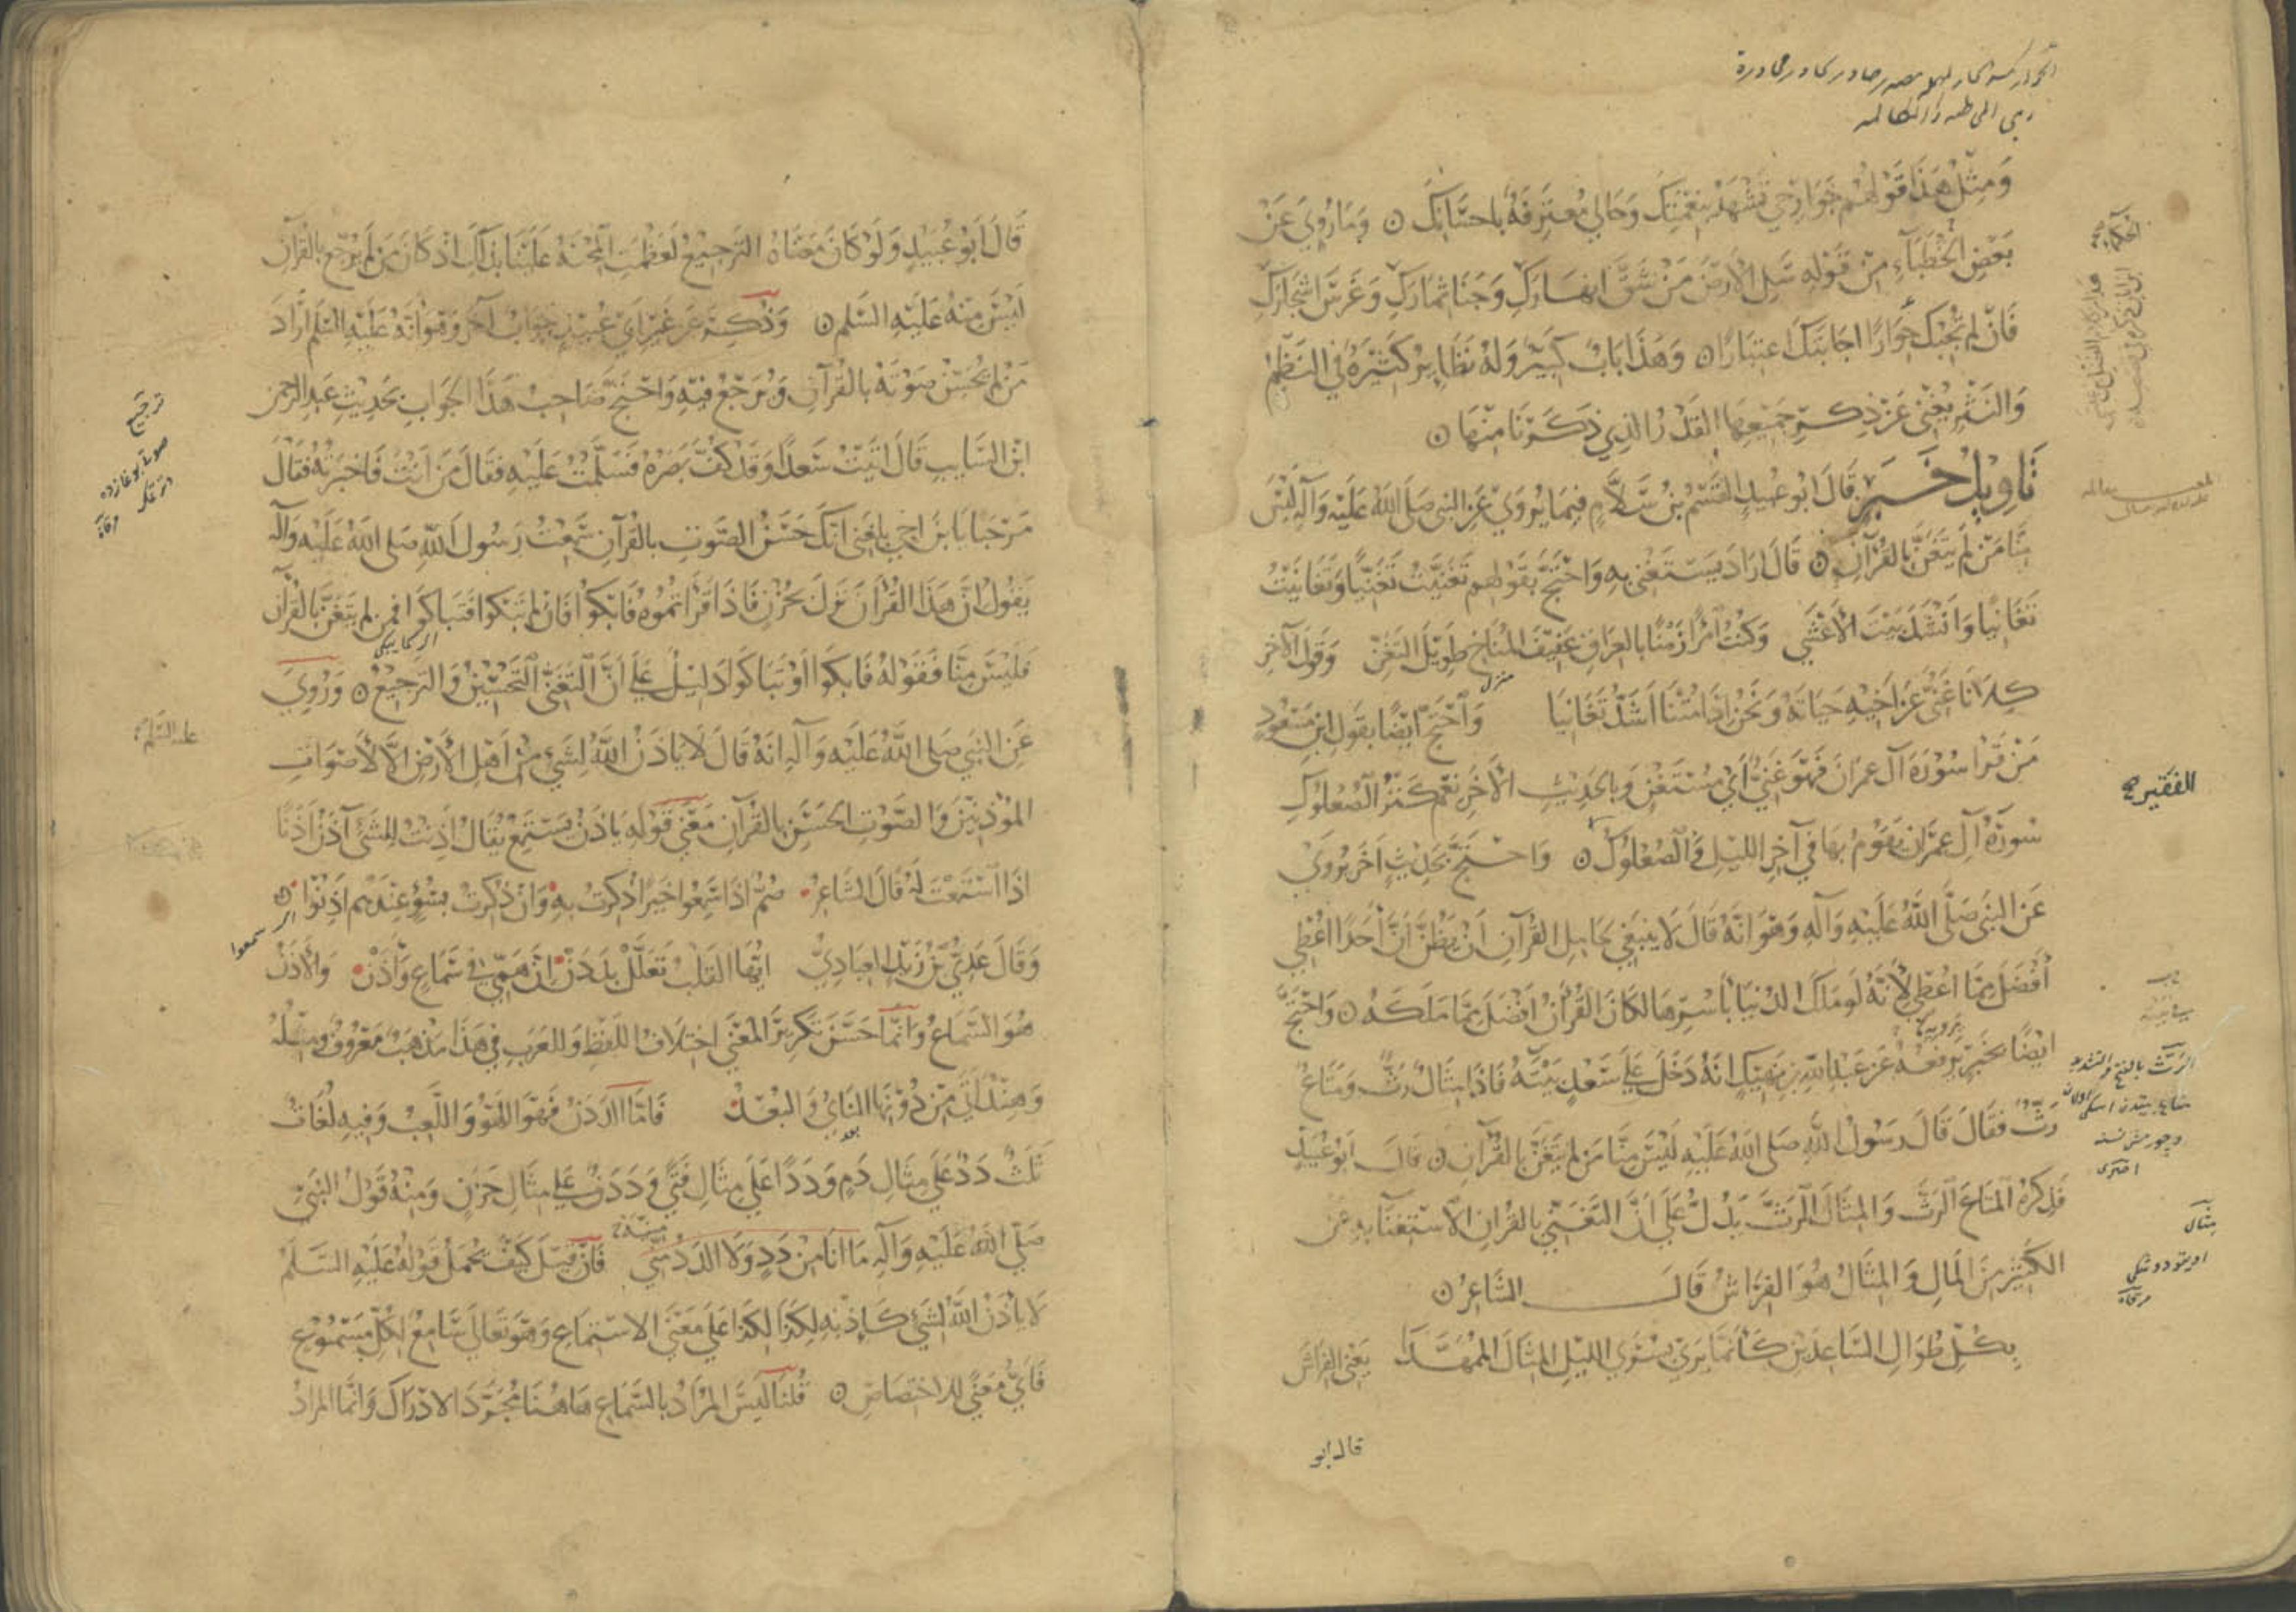 ومثل هذا قولهم جوارحي تشهد بنعمتك وحالي معترفة باحسانك ن وما روي عن
بعض الخطباء من قوله سل الارض من شق انهارك وجنا ثمارك وغرس اشجارك
فان لم تجبك حوارا اجابتك اعتبارا ن وهذا باب كبير وله نظاير كثيرة في النظم
والنثر يغني عن ذكر جميعها القدر الذي ذكرنا منها ن
تاويل خبر قال ابو عبيد القسم بن سلام فيما يروي عن النبي صلى الله عليه وآله ليس
منا من لم يتغن بالقرآن ن قال اراد يستغني به واحتج بقولهم تغنيت تغنيا وتغانيت
تغانيا وانشد بيت الاعشى وكنت امرا زمنا بالعراق عفيف المناخ طويل التغن وقول الآخر
منزل
كلانا غني عن اخيه حياته ونحن اذا متنا اشد تغانيا واحتج ايضا بقول ابن مسعود
من قرا سورة آل عمران فهو غني اي مستغن وبالحديث الآخر نعم كنز الصعلوك
سورة آل عمران يقوم بها في آخر الليل الصعلوك ن واحتج بحديث آخر يروى
عن النبي صلى الله عليه وآله وهو انه قال لا ينبغي لحامل القرآن ان يظن ان احدا اعطي
افضل مما اعطي لانه لو ملك الدنيا باسرها لكان القرآن افضل مما ملكه ن واحتج
ايضا بخبر يرفعه عن عبد الله بن نهيك انه دخل على سعد بيته فاذا مثال رث ومتاع
رث فقال قال رسول الله صلى الله عليه ليس منا من لم يتغن بالقرآن ن قال ابو عبيد
فذكره المتاع الرث والمثال الرث يدل على ان التغني بالقران الاستغنا به عن
الكثير من المال والمثال هو الفراش قال الشاعر ن
بكل طوال الساعدين كانما يرى بسرى الليل المثال الممهدا يعني الفراش
قال ابو
الفقير
مثال
قال ابو عبيد ولو كان معناه الترجيع لعظمت المحنة علينا بذلك اذ كان من لم يرجع بالقرآن
ليس منه عليه السلم ن وذكر عن غير ابي عبيد جواب آخر وهو انه عليه السلم اراد
من لم يحسن صوته بالقرآن ويرجع فيه واحتج صاحب هذا الجواب بحديث عبد الرحمن
ابن السايب قال اتيت سعدا وقد كف بصره فسلمت عليه فقال من انت فاخبرته فقال
مرحبا يا بن اخي بلغني انك حسن الصوت بالقرآن سمعت رسول الله صلى الله عليه وآله
يقول ان هذا القرآن نزل بحزن فاذا قراتموه فابكوا فان لم تبكوا فتباكوا فمن لم يتغن بالقرآن
فليس منا فقوله فابكوا او تباكوا دليل على ان التغني التحسين والترجيع ن وروي
عن النبي صلى الله عليه وآله انه قال لا ياذن الله لشيء من اهل الارض الا لاصوات
المؤذنين والصوت الحسن بالقرآن معنى قوله ياذن يستمع يقال اذنت للشيء آذن اذنا
اذا استمعت له قال الشاعر صم اذا سمعوا خيرا ذكرت به وان ذكرت بسوء عندهم اذنوا ن
اي سمعوا
وقال عدي بن زيد العبادي ايها القلب تعلل بددن ان همي في سماع واذن والاذن
هو السماع وانما حسن تكرير المعنى اختلاف اللفظ وللعرب في هذا مذهب معروف ومثله
وهند اتى من دونها الناي والبعد فاما الددن فهو اللهو واللعب وفيه لغات
ثلث دد على مثال دم وددا على مثال فتى وددن على مثال حزن ومنه قول النبي
صلى الله عليه وآله ما انا من دد ولا الدد مني فان قيل كيف يحمل قوله عليه السلم
لا ياذن الله لشيء كاذنه لكذا لكذا على معنى الاستماع وهو تعالى سامع لكل مسموع
فاي معنى للاختصاص ن قلنا ليس المراد بالسماع هاهنا مجرد الادراك وانما المراد
ترجيع
عليه السلم